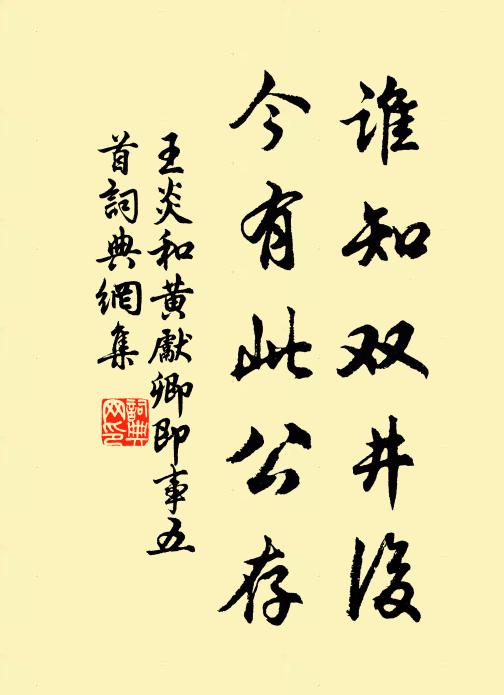 誰知双井後
今有此公存
王炎和黄獻卿即事五
首詞典網集
詞典
网印